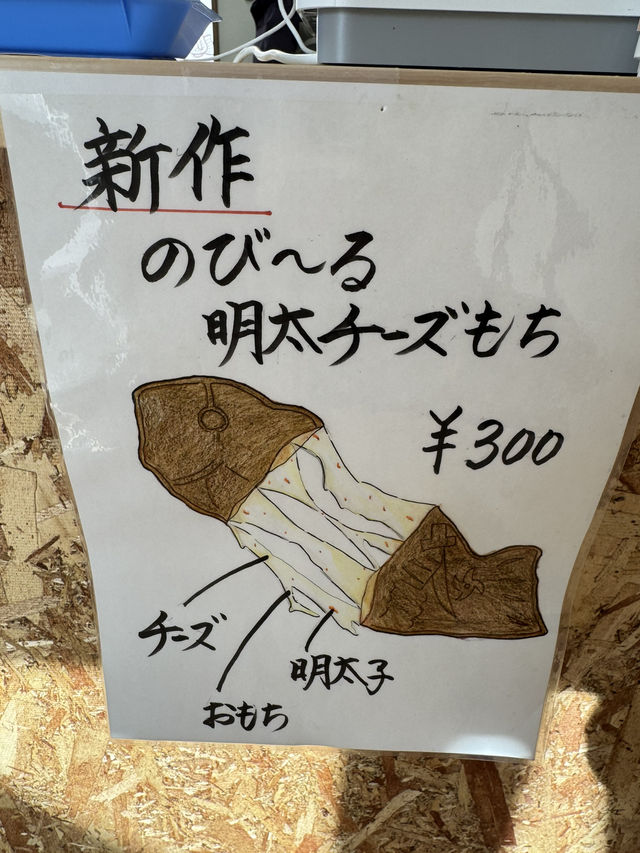 新作
のび〜る
明太チーズもち
¥300
チーズ
おもち
明太子